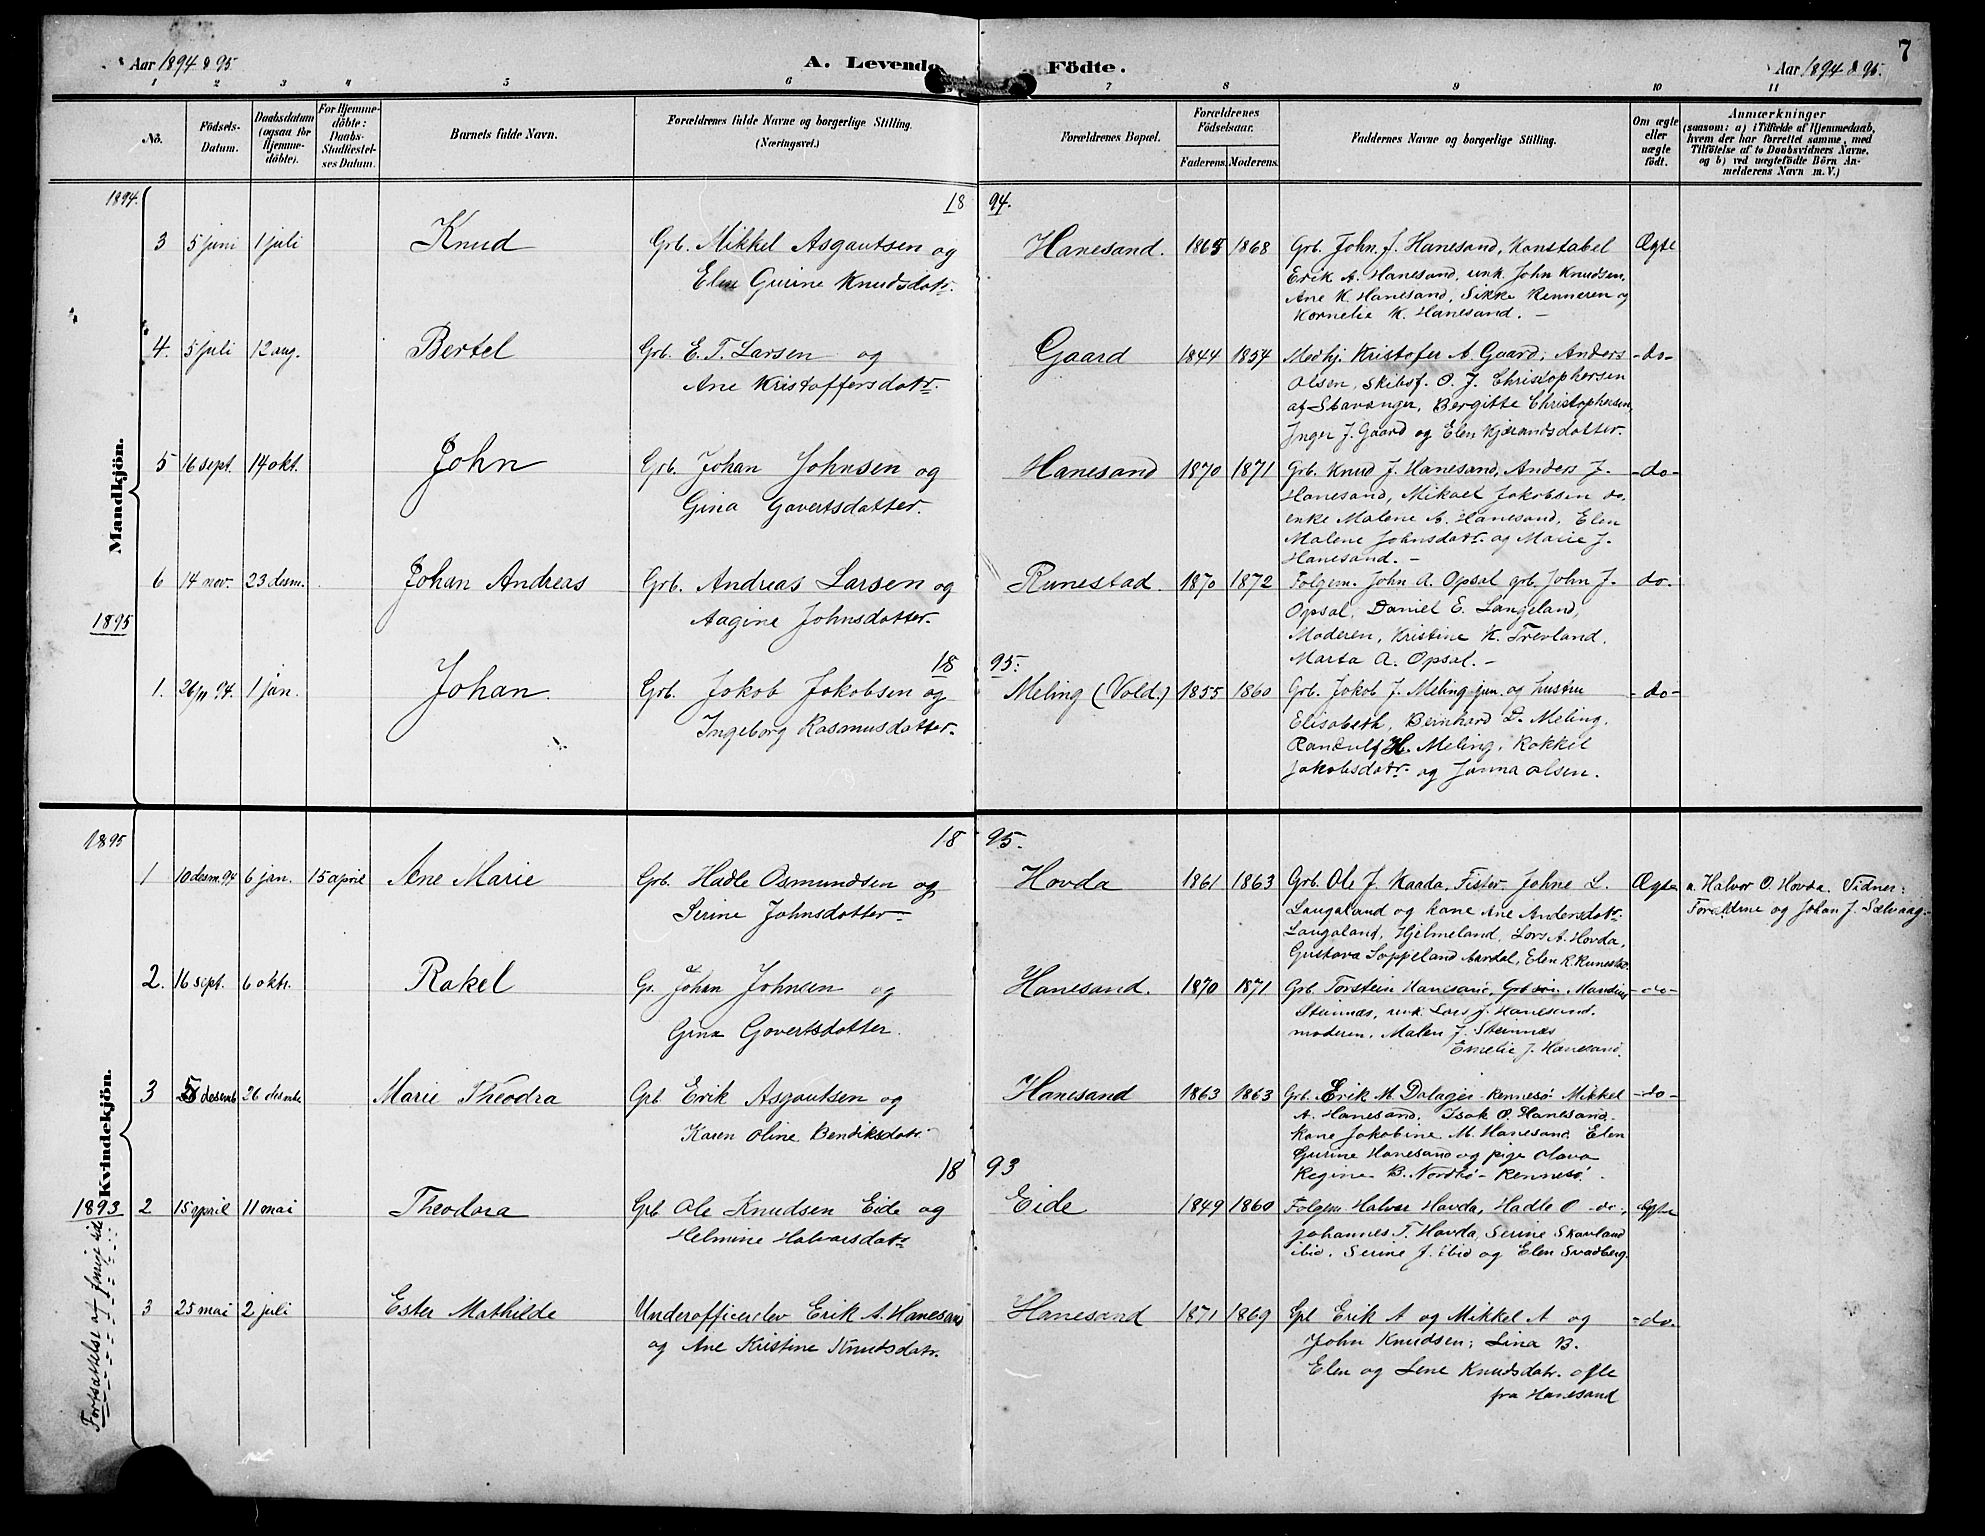 7
Aar 1894 & 95.
A. Levende Födte.
Aar 1894 & 95.
1 2 3 4 5 6 7 8 9 10 11
No.
Födsels-Datum.
Daabsdatum (ogsaa for Hjemme-döbte).
For Hjemme-döbte: Daabs-Stadfæstel-ses Datum.
Barnets fulde Navn.
Forældrenes fulde Navne og borgerlige Stilling. (Næringsvei.)
Forældrenes Bopæl.
Forældrenes Födselsaar.
Faderens. Moderens.
Faddernes Navne og borgerlige Stilling.
Om ægte eller uægte födt.
Anmærkninger
(saasom: a) i Tilfælde af Hjemmedaab,
hvem der har forrettet samme, med
Tilföielse af to Daabsvidners Navne,
og b) ved uægtefödte Börn An-
melderens Navn m. V.)
Mandkjön.
1894. 18 94.
3 5 juni 1 juli Knud Grb. Mikkel Asgautsen og Hanesand. 1865 1868 Grb. John J. Hanesand, Konstabel Ægte
Elen Gurine Knudsdatr. Erik A. Hanesand, unk. John Knudsen,
Ane K. Hanesand, Sikke Renneren og
Kornelie K. Hanesand. –
4. 5 juli 12 aug. Bertel Grb. E. T. Larsen og Gaard 1844 1854 Medhj. Kristofer A. Gaard, Anders -do-
Ane Kristoffersdatr. Olsen, Skibsf. O. J. Christophersen
af Stavanger, Bergitte Christophersen,
Inger J. Gaard og Elen Kjærandsdatter.
5 16 sept. 14 okt. John Grb. Johan Johnsen og Hanesand 1870 1871 Grb. Knud J. Hanesand, Anders J. -do-
Gina Govertsdatter. Hanesand, Mikael Jakobsen do,
enke Malene A. Hanesand, Elen
Malene Johnsdatr. og Marie J.
Hanesand. –
6 14 nov. 23 desm. Johan Andreas Grb. Andreas Larsen og Runestad. 1870 1872 Folgem. John A. Opsal grb. John J. do.
Aagine Johnsdatter. Opsal, Daniel E. Langeland,
Moderen, Kristine K. Trevland,
Marta A. Opsal. –
1895 18 95.
1. 26/11 94. 1 jan. Johan Grb. Jakob Jakobsen og Meling (Vold.) 1855 1860 Grb. Jakob J. Meling jun. og hustru -do-
Ingeborg Rasmusdatter. Elisabeth, Bernhard D. Meling,
Randulf H. Meling, Rakkel
Jakobsdatr. og Janna Olsen.
Kvindekjön.
1895 18 95.
1 10 desm. 94 6 jan. 15 april Ane Marie Grb. Hadle Osmundsen og Hovda 1861 1863 Grb. Ole J. Kaada, Fister, Johne L. Ægte a. Halvor O. Hovda. Vidner:
Serine Johnsdatter Laugaland og kone Ane Andersdatr. Forældrne og Johan J. Sælvaag.
Laugaland, Hjelmeland, Lars A. Hovda,
Gustava Soppeland Aardal, Elen R. Runestad.
2. 16 sept. 6 oktr. Rakel Gr. Johan Johnsen og Hanesand. 1870 1871 Grb. Torstein Hanesand, Grb Mandius -do-
Gina Govertsdotter. Steinnæs, unk. Lars J. Hanesand,
moderen, Malen J. Steinnæs
Emelie J. Hanesand.
3 5 desemb 26 desmbr Marie Theodra Grb. Erik Asgautsen og Hanesand 1863 1863 Grb. Erik M. Dalager Rennesø Mikkel -do-
Karen Oline Bendiksdatr. A. Hanesand. Isak O. Hanesand.
Kone Jakobine M. Hanesand Elen
Gurine Hanesand og pige Olava
Regine B. Nordbø – Rennesø.
1893 18 93
2 15 april 11 mai Theodora Grb. Ole Knudsen Eide og Eide 1849 1860 Folgem. Halvor Hovda, Hadle O do, Ægte
Helmine Halvorsdatr Johannes T. Hovda, Serine Skavland
ibid, Serine J. ibid og Elen Svadberg.
3 25 mai 2 juli Ester Mathilde Underofficerelev Erik A. Hanesand Hanesand 1871 1869 Grb Erik A og Mikkel A og -do.
og Ane Kristine Knudsdatr. John Knudsen; Lina B.
Elen og Lene Knudsdatr. alle
fra Hanesand
Fortsættelse af forrige side